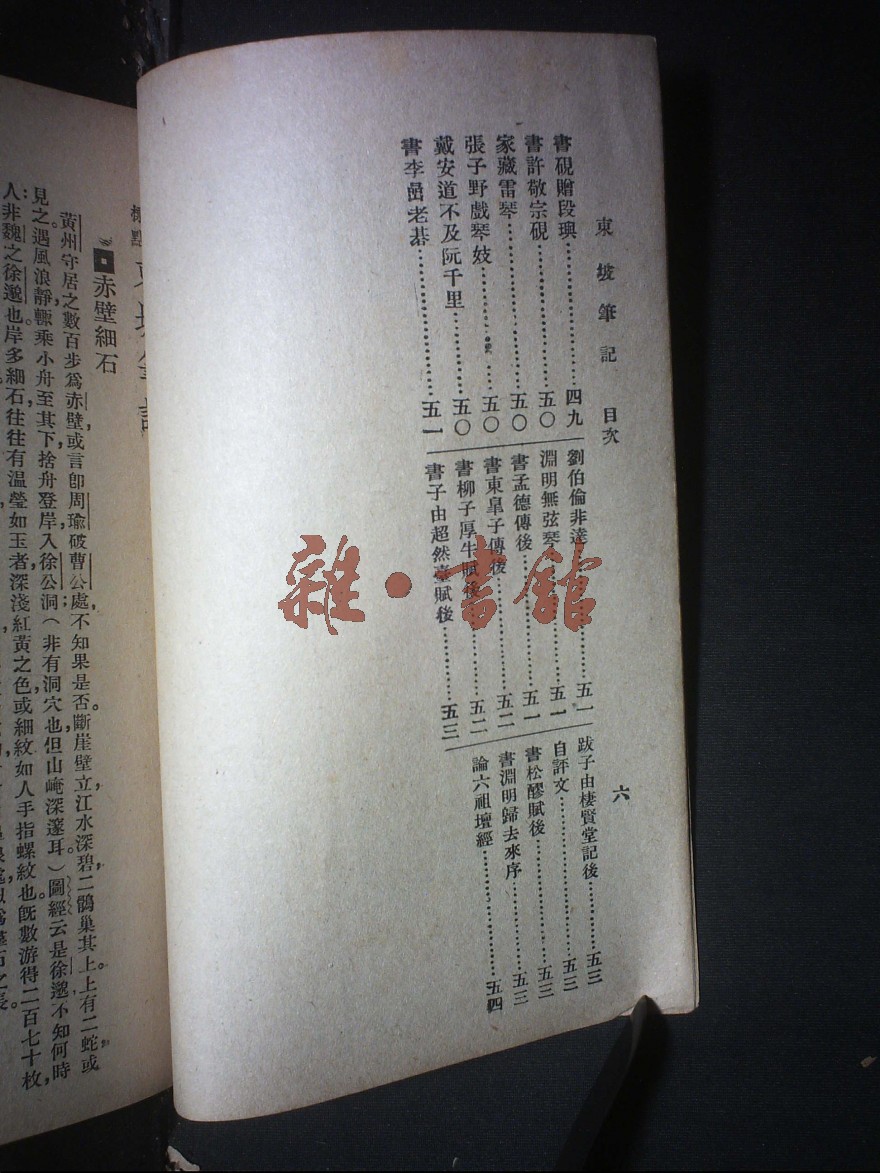 東坡筆記 目次 六
書硯贈段璵…………四九
書許敬宗硯…………五〇
家藏雷琴…………五〇
張子野戲琴妓…………五〇
戴安道不及阮千里…………五〇
書李嵒老棊…………五一
劉伯倫非達…………五一
淵明無弦琴…………五一
書孟德傳後…………五一
書東臯子傳後…………五二
書柳子厚牛賦後…………五二
書子由超然臺賦後…………五三
跋子由棲賢堂記後…………五三
自評文…………五三
書松醪賦後…………五三
書淵明歸去來序…………五三
論六祖壇經…………五四
雜·書館
赤壁細石
黃州守居之數百步爲赤壁,或言卽周瑜破曹公處,不知果是否。斷崖壁立,江水深碧,二鶻巢其上。上有二蛇,或
見之。遇風浪靜,輒乘小舟至其下,捨舟登岸,入徐公洞(非有洞穴也,但山崦深邃耳。)圖經云是徐邈,不知何時
人,非魏之徐邈也。岸多細石,往往有溫瑩如玉者,深淺紅黃之色,或細紋如人手指螺紋也。旣數游,得二百七十枚,